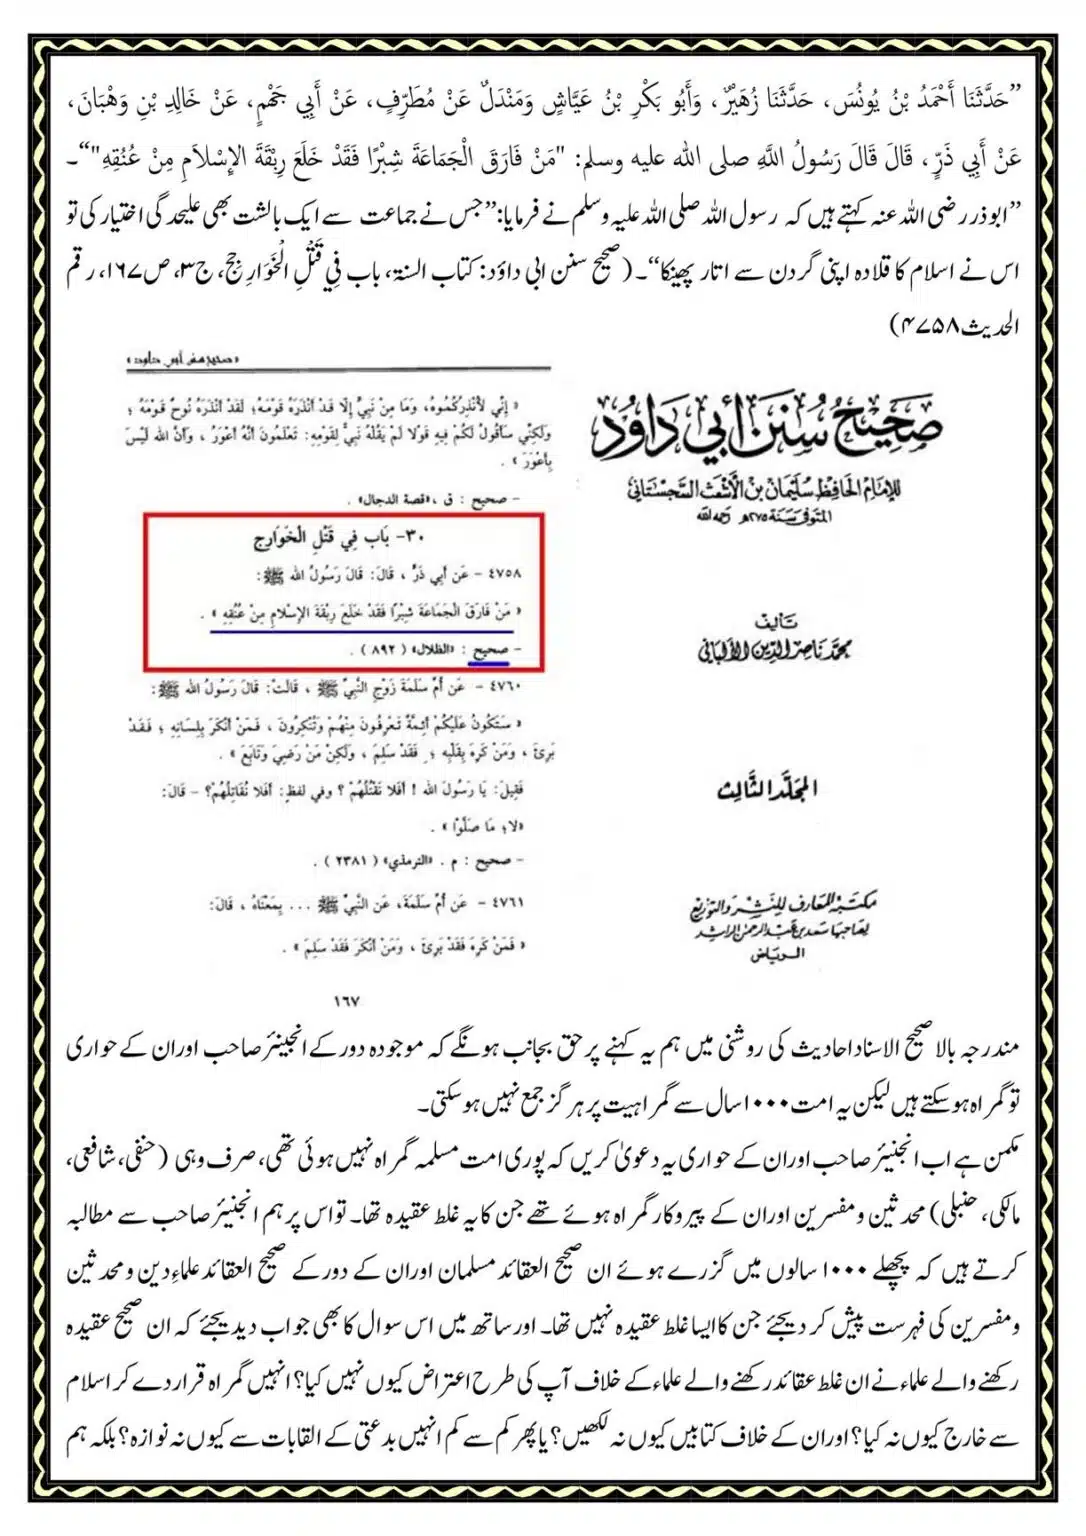 ”حَدَّثَنَا أَحْمَدُ بْنُ يُونُسَ، حَدَّثَنَا زُهَيْرٌ، وَأَبُو بَكْرِ بْنُ عَيَّاشٍ وَمَنْدَلٌ عَنْ مُطَرِّفٍ، عَنْ أَبِي جَهْمٍ، عَنْ خَالِدِ بْنِ وَهْبَانَ،
عَنْ أَبِي ذَرٍّ، قَالَ قَالَ رَسُولُ اللَّهِ صلى الله عليه وسلم: "مَنْ فَارَقَ الْجَمَاعَةَ شِبْرًا فَقَدْ خَلَعَ رِبْقَةَ الإِسْلَامِ مِنْ عُنُقِهِ"“۔
”ابوذر رضی اللہ عنہ کہتے ہیں کہ رسول اللہ صلی اللہ علیہ وسلم نے فرمایا:”جس نے جماعت سے ایک بالشت بھی علیحدگی اختیار کی تو
اس نے اسلام کا قلادہ اپنی گردن سے اتار پھینکا“۔(صحیح سنن ابی داؤد: کتاب السنۃ، باب فِي قَتْلِ الْخَوَارِجِ، ج۳، ص۱۶۷، رقم
الحدیث۴۷۵۸)
«صحيح سنن أبي داود»
« إِنِّي لأُنْذِرُكُمُوهُ، وَمَا مِنْ نَبِيٍّ إِلَّا قَدْ أَنْذَرَهُ قَوْمَهُ؛ لَقَدْ أَنْذَرَهُ نُوحٌ قَوْمَهُ ؛
وَلَكِنِّي سَأَقُولُ لَكُمْ فِيهِ قَوْلًا لَمْ يَقُلْهُ نَبِيٌّ لِقَوْمِهِ: تَعْلَمُونَ أَنَّهُ أَعْوَرُ ، وَأَنَّ اللهَ لَيْسَ
بِأَعْوَرَ » .
- صحيح : ق ، «قصة الدجال» .
٣٠- بَاب فِي قَتْلِ الْخَوَارِجِ
٤٧٥٨ - عَن أَبِي ذَرٍّ ، قَالَ: قَالَ رَسُولُ اللهِ ﷺ:
« مَنْ فَارَقَ الْجَمَاعَةَ شِبْرًا فَقَدْ خَلَعَ رِبْقَةَ الإِسْلامِ مِنْ عُنُقِهِ » .
- صحيح : «الظلال» ( ٨٩٢ ) .
٤٧٦٠ - عَن أُمِّ سَلَمَةَ زَوْجِ النَّبِيِّ ﷺ ، قَالَتْ: قَالَ رَسُولُ اللهِ ﷺ:
« سَتَكُونُ عَلَيْكُمْ أَئِمَّةٌ تَعْرِفُونَ مِنْهُمْ وَتُنْكِرُونَ ، فَمَنْ أَنْكَرَ بِلِسَانِهِ ؛ فَقَدْ
بَرِئَ ، وَمَنْ كَرِهَ بِقَلْبِهِ ؛ فَقَدْ سَلِمَ ، وَلَكِنْ مَنْ رَضِيَ وَتَابَعَ » .
فَقِيلَ: يَا رَسُولَ اللهِ ! أَفَلا نَقْتُلُهُمْ ؟ وفي لفظٍ: أَفَلا نُقَاتِلُهُمْ؟ - قَالَ:
«لا؛ مَا صَلَّوْا » .
- صحيح : م . «الترمذي» ( ٢٣٨١ ) .
٤٧٦١ - عَن أُمِّ سَلَمَةَ، عَن النَّبِيِّ ﷺ ... بِمَعْنَاهُ ، قَالَ:
« فَمَنْ كَرِهَ فَقَدْ بَرِئَ ، وَمَنْ أَنْكَرَ فَقَدْ سَلِمَ » .
١٦٧
صَحِيحُ سُنَنِ أَبِي دَاوُد
للإمام الحافظ سليمان بن الأشعث السجستاني
المتوفى سنة ٢٧٥هـ رحمه الله
تأليف
محمد ناصر الدين الألباني
المجلد الثالث
مكتبة المعارف للنشر والتوزيع
لصاحبها سعد بن عبد الرحمن الراشد
الرياض
مندرجہ بالا صحیح الاسناد احادیث کی روشنی میں ہم یہ کہنے پر حق بجانب ہونگے کہ موجودہ دور کے انجینئر صاحب اور ان کے حواری
تو گمراہ ہو سکتے ہیں لیکن یہ امت ۱۰۰۰ سال سے گمراہیت پر ہر گز جمع نہیں ہو سکتی۔
مکمن ہے اب انجنیئر صاحب اور ان کے حواری یہ دعویٰ کریں کہ پوری امت مسلمہ گمراہ نہیں ہوئی تھی، صرف وہی (حنفی، شافعی،
مالکی، حنبلی) محدثین ومفسرین اور ان کے پیروکار گمراہ ہوئے تھے جن کا یہ غلط عقیدہ تھا۔ تو اس پر ہم انجنیئر صاحب سے مطالبہ
کرتے ہیں کہ پچھلے ۱۰۰۰ سالوں میں گزرے ہوئے ان صحیح العقائد مسلمان اور ان کے دور کے صحیح العقائد علماءِ دین و محدثین
ومفسرین کی فہرست پیش کر دیجئے جن کا ایسا غلط عقیدہ نہیں تھا۔ اور ساتھ میں اس سوال کا بھی جواب دیدیجئے کہ ان صحیح عقیدہ
رکھنے والے علماء نے ان غلط عقائد رکھنے والے علماء کے خلاف آپ کی طرح اعتراض کیوں نہیں کیا؟ انہیں گمراہ قرار دے کر اسلام
سے خارج کیوں نہ کیا؟ اور ان کے خلاف کتابیں کیوں نہ لکھیں؟ یا پھر کم سے کم انہیں بدعتی کے القابات سے کیوں نہ نوازہ؟ بلکہ ہم